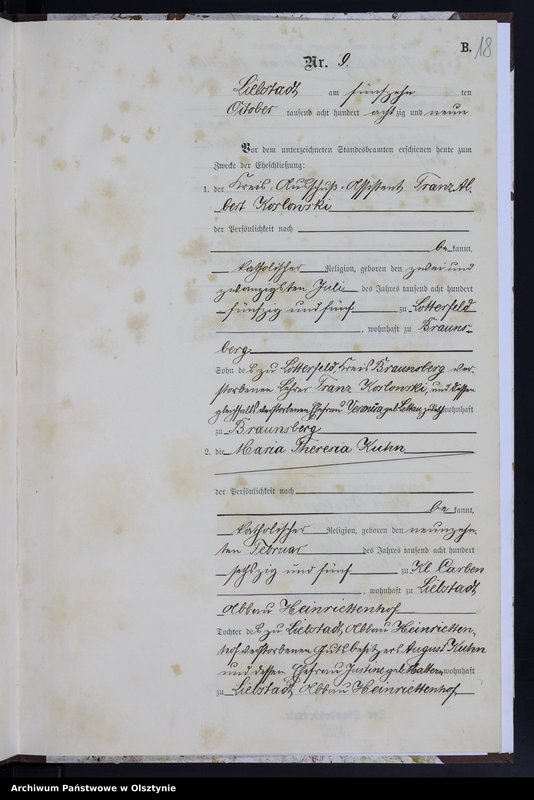 B. 18
Nr. 9.
Liebstadt am fünfzehn ten
October tausend acht hundert acht zig und neun
Vor dem unterzeichneten Standesbeamten erschienen heute zum
Zwecke der Eheschließung:
1. der Kreis-Ausschuß-Assistent Franz Al-
bert Korlowski
der Persönlichkeit nach
be kannt,
katholischer Religion, geboren den zwei und
zwanzigsten Juli des Jahres tausend acht hundert
fünfzig und fünf zu Lotterfeld
, wohnhaft zu Brauns-
berg
Sohn des zu Lotterfeld, Kreis Braunsberg ver-
storbenen Lehrer Franz Korlowski, und dessen
gleichfalls verstorbenen Ehefrau Veronica geb. wohnhaft
zu Braunsberg
2. die Maria Theresia Kuhn
der Persönlichkeit nach
be kannt,
katholischer Religion, geboren den neunzehn-
ten Februar des Jahres tausend acht hundert
sechszig und fünf zu Kl. Carben
, wohnhaft zu Liebstadt,
Abbau Heinriettenhof
Tochter des zu Liebstadt, Abbau Heinrietten-
hof verstorbenen Gutsbesitzers August Kuhn
und dessen Ehefrau Justine geb. Hatten, wohnhaft
zu Liebstadt, Abbau Heinriettenhof
Archiwum Państwowe w Olsztynie